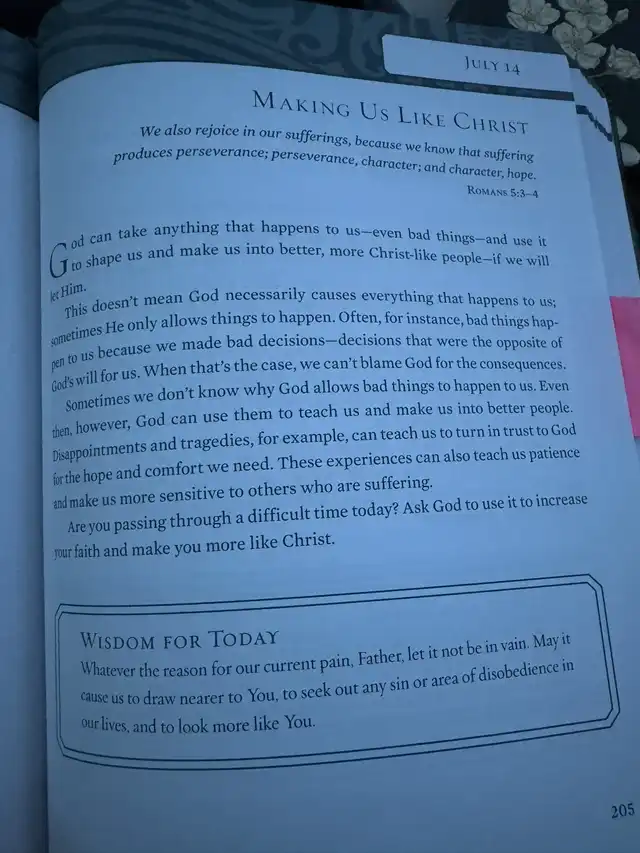 July 14
Making Us Like Christ
We also rejoice in our sufferings, because we know that suffering
produces perseverance; perseverance, character; and character, hope.
Romans 5:3–4
God can take anything that happens to us—even bad things—and use it
to shape us and make us into better, more Christ-like people—if we will
let Him.
This doesn't mean God necessarily causes everything that happens to us;
sometimes He only allows things to happen. Often, for instance, bad things hap-
pen to us because we made bad decisions—decisions that were the opposite of
God's will for us. When that's the case, we can't blame God for the consequences.
Sometimes we don't know why God allows bad things to happen to us. Even
then, however, God can use them to teach us and make us into better people.
Disappointments and tragedies, for example, can teach us to turn in trust to God
for the hope and comfort we need. These experiences can also teach us patience
and make us more sensitive to others who are suffering.
Are you passing through a difficult time today? Ask God to use it to increase
your faith and make you more like Christ.
Wisdom for Today
Whatever the reason for our current pain, Father, let it not be in vain. May it
cause us to draw nearer to You, to seek out any sin or area of disobedience in
our lives, and to look more like You.
205